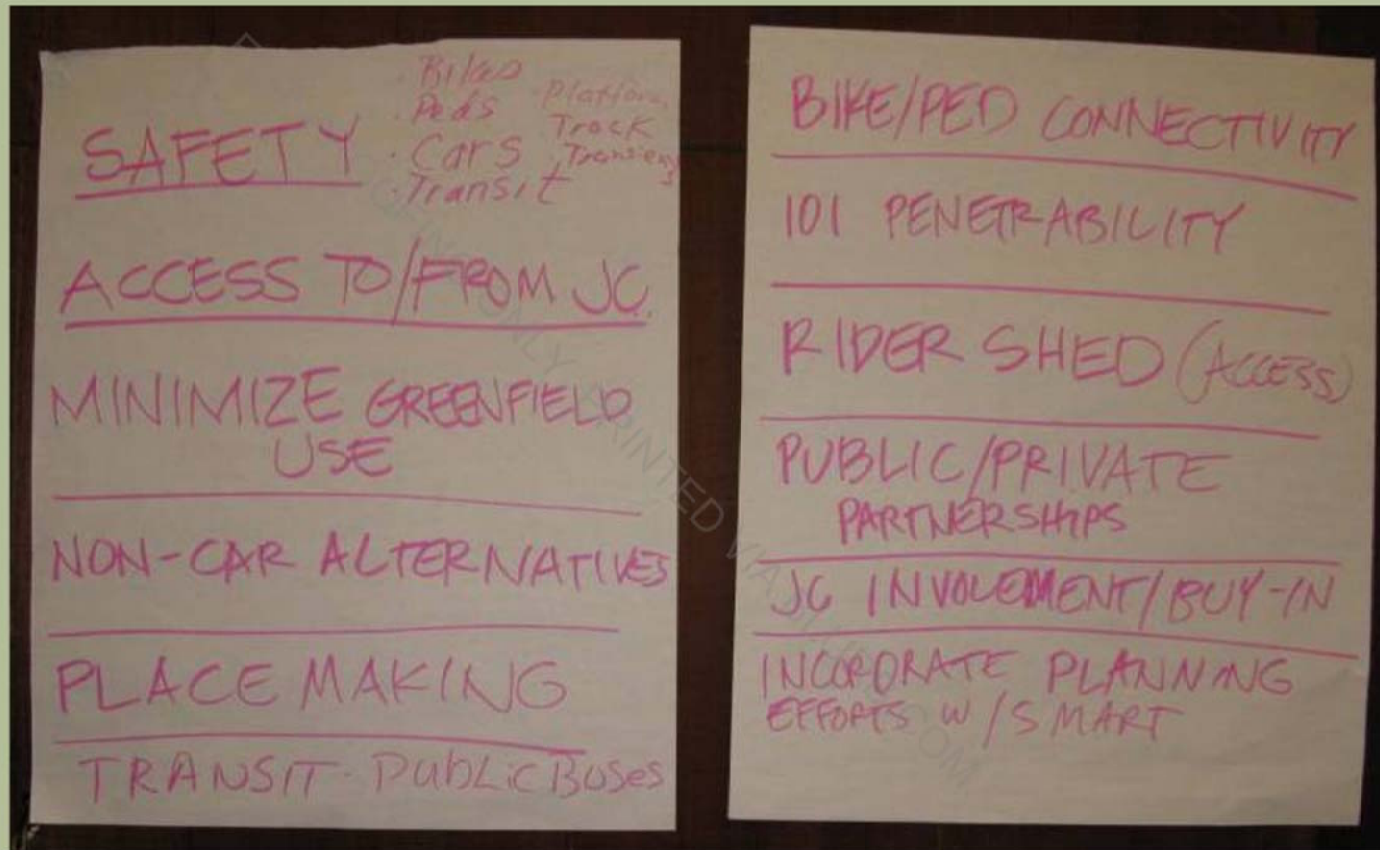 SAFETY
· Bikes
· Peds
· Cars
· Transit
Platform
Track
ACCESS TO/FROM JC.
MINIMIZE GREENFIELD
USE
NON-CAR ALTERNATIVES
PLACE MAKING
TRANSIT - Public Buses
BIKE/PED CONNECTIVITY
101 PENETRABILITY
RIDER SHED (ACCESS)
PUBLIC/PRIVATE
PARTNERSHIPS
JC INVOLEMENT/BUY-IN
INCORORATE PLANNING
EFFORTS W/SMART